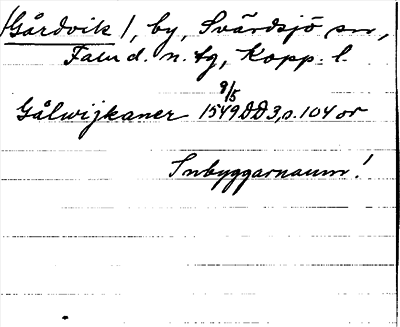 /Gårdvik/, by, Svärdsjö sn,
Falu d. n. tg, Kopp. l.
Gålwijkaner 1549 9/5 DD3, s. 104 or
Inbyggarnamn!